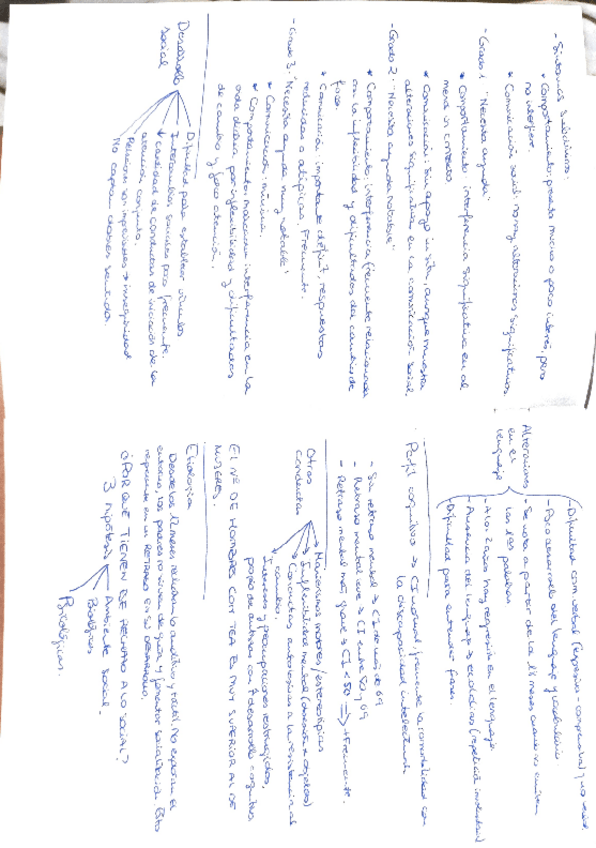 - Síntomas subclínicos:
* Comportamiento: presta mucho o poco interés, pero
no interfiere.
* Comunicación social: no hay alteraciones significativas
- Grado 1 "Necesita ayuda"
* Comportamiento: interferencia significativa en al
menos un contexto.
* Comunicación: Sin apoyo in situ, aunque muestra
alteraciones significativas en la comunicación social.
- Grado 2: "Necesita ayuda notable"
* Comportamiento: interferencia frecuente relacionada
con la inflexibilidad y dificultades del cambio de
foco.
* Comunicación: importante déficit, respuestas
reducidas o atípicas. Frecuente.
- Grado 3: "Necesita ayuda muy notable"
* Comunicación: mínima.
* Comportamiento: marcada interferencia en la
vida diaria por inflexibilidad y dificultades
de cambio y foco atención.
Desarrollo
social
Dificultad para establecer vínculos
Interacciones sociales poco frecuente
↓ cantidad de conductas de iniciación de la
atención conjunta.
No captan claves sociales.
Alteraciones
en el
lenguaje
Dificultad com. verbal (expresión - comprensión) y no verbal
- Poco desarrollo del lenguaje y vocabulario
- Se nota a partir de los 18 meses cuando no emiten
las 1ªs palabras
- A los 2 años hay regresión en el lenguaje
- Ausencia del lenguaje → ecolalias (repetición involuntaria)
- Dificultad para entender frases.
Perfil cognitivo → CI normal, frecuente la comorbilidad con
la discapacidad intelectual.
- Sin retraso mental → CI de más de 69
- Retraso mental leve → CI entre 50 y 69
- Retraso mental más grave → CI < 50 → + Frecuente.
Otras
conductas
Manierismos motores / estereotipias
Inflexibilidad mental
Conductas autolesivas a la resistencia al
cambio.
Intereses y preocupaciones restringidos,
propio de autistas con ↑ desarrollo cognitivo
EL Nº DE HOMBRES CON TEA ES MUY SUPERIOR AL DE
MUJERES.
Etiología
¿POR QUÉ TIENEN ESE RECHAZO A LO SOCIAL?
3 hipótesis
Ambiente social.
Biológicas
Psicológicas.